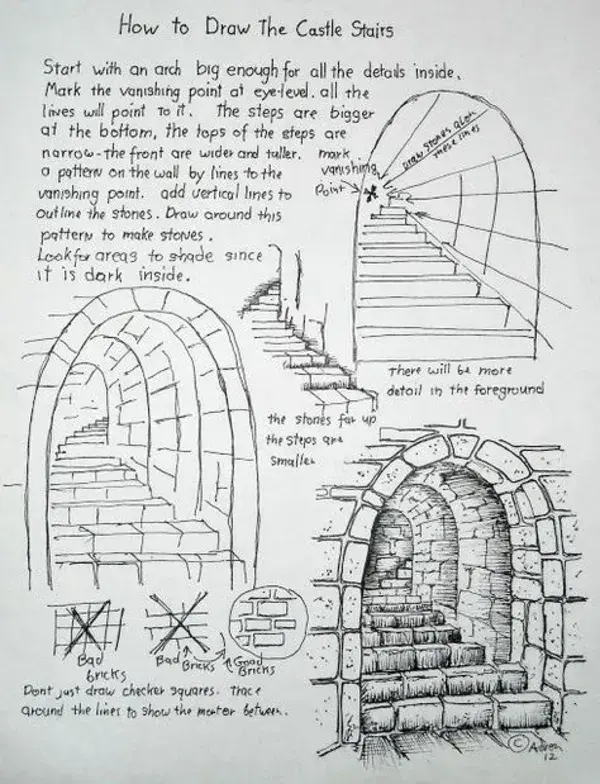 How to Draw The Castle Stairs
Start with an arch big enough for all the details inside.
Mark the vanishing point at eye-level. all the
lives will point to it. The steps are bigger
at the bottom, the tops of the steps are
narrow-the front are wider and taller.
a pattern on the wall by lines to the
vanishing point. add vertical lines to
outline the stones. Draw around this
pattern to make stones.
Look for areas to shade since
it is dark inside.
mark
vanishing
point
Draw stones along
these lines
There will be more
detail in the foreground
the stones far up
the steps are
smaller
Bad
bricks
Bad Bricks
Good
Bricks
Dont just draw checker squares. Trace
around the lines to show the morter between.
© Adron
12